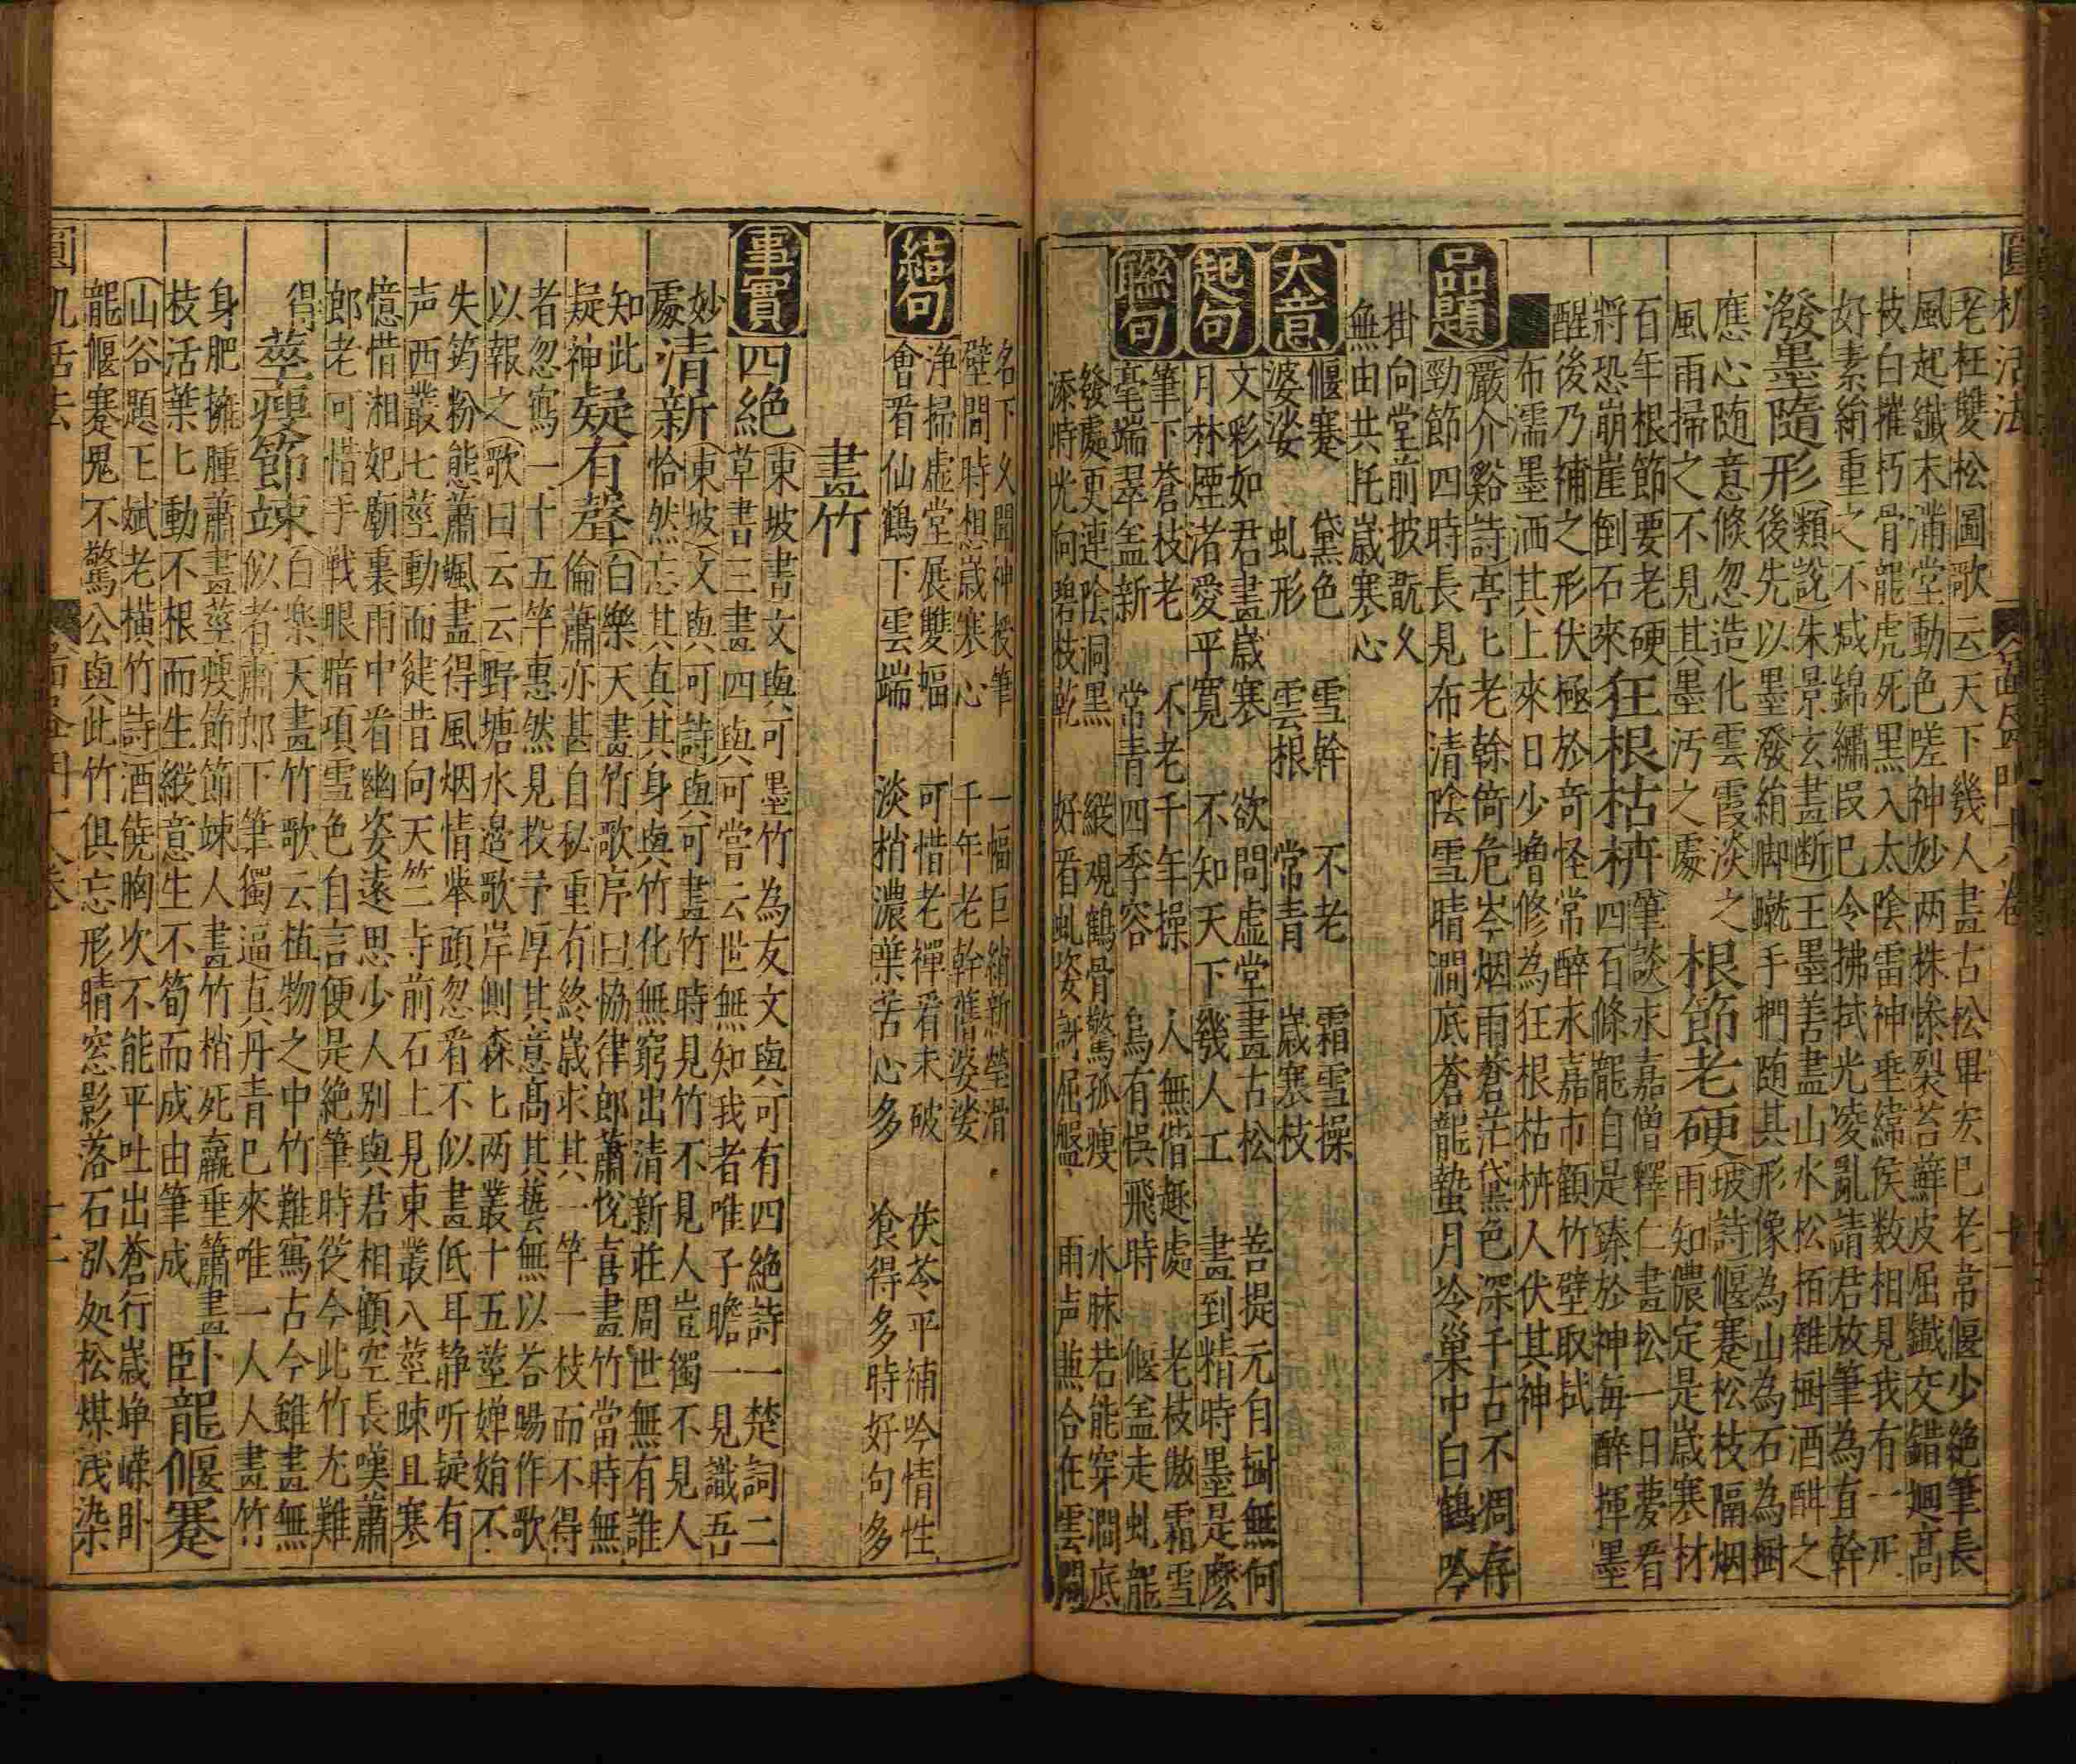 圓机活法
畫品門十八卷
十一
老枉雙松圖歌云天下幾人畫古松畢宏已老常偃少絕筆長
風起纖末滿堂動色嗟神妙两株慘裂苔蘚皮屈鐵交錯迴高
枝白摧朽骨龍虎死黑入太陰雷神垂綿侯数相見我有一疋
好素絹重之不减錦繡段巳令拂拭光凌亂請君放筆為直幹
潑墨隨形類說朱景玄畫断王墨善畫山水松栢雜樹酒酣之
後先以墨潑絹脚蹴手捫随其形像為山為石為樹
應心随意倐忽造化雲霞淡之
風雨掃之不見其墨汚之處
根節老硬坡詩偃蹇松枝隔烟
雨知儂定是歲寒材
百年根節要老硬
將恐崩崖倒石來
狂根枯枿筆談永嘉僧釋仁畫松一日夢看
四石條龍自是臻於神每醉揮墨
醒後乃補之形伏極於竒怪常醉永嘉市顧竹壁取拭
布濡墨洒其上來日少增修為狂根枯枿人伏其神
品題
嚴介谿詩亭七老幹倚危岑烟雨蒼茫黛色深千古不凋存
勁節四時長見布清陰雪晴澗底蒼龍蟄月冷巢中白鶴吟
掛向堂前披翫久
無由共托歲寒心
大意
偃蹇 黛色 雪幹 不老 霜雪操
婆娑 虬形 雲根 常青 歲寒枝
起句
文彩如君畫歲寒 欲問虚堂畫古松 菩提元自樹無何
月林煙渚愛平寬 不知天下幾人工 畫到精時墨是麽
聮句
筆下蒼枝老 不老千年操 人無偕趣處 老枝傲霜雪
毫端翠盖新 常青四季容 烏有悞飛時 偃盖走虬龍
發處更連陰洞黒 縱觀鶴骨驚孤痩 水脉若能穿澗底
添時光向碧枝乾 好看虬姿訝屈盤 雨声無合在雲間
名下久聞神授筆 一幅巨綃新瑩滑
壁間時想歲寒心 千年老幹舊婆娑
結句
浄掃虚堂展雙幅 可惜老禪看未破 茯苓平補吟情性
會看仙鶴下雲端 淡梢濃葉苦心多 飡得多時好句多
畫竹
事實
四絶東坡書文與可墨竹為友文與可有四絶詩一楚詞二
草書三畫四與可嘗云世無知我者唯子瞻一見識吾
妙
處
清新東坡文與可詩與可畫竹時見竹不見人豈獨不見人
恰然忘其真其身與竹化無窮出清新莊周世無有誰
知此
疑神
疑有聲白樂天畫竹歌序曰恊律郎蕭悅喜畫竹當時無
倫蕭亦甚自秘重有終歲求其一竿一枝而不得
者忽寫一十五竿惠然見投予厚其意髙其藝無以荅賜作歌
以報之歌曰云云野塘水邉歌岸側森七两叢十五莖嬋娟不
失筠粉態蕭颯盡得風烟情舉頭忽看不似畫低耳静听疑有
声西叢七莖動而徤昔向天竺寺前石上見東叢八莖踈且寒
憶惜湘妃廟裏雨中看幽姿遠思少人别與君相顧空長嘆蕭
郎老可惜手戦眼暗項雪色自言便是絶筆時從今此竹尤難
得
莖瘦節竦白樂天畫竹歌云植物之中竹難寫古今雖畫無
似者蕭郎下筆獨逼真丹青巳來唯一人人畫竹
身肥擁腫蕭畫莖瘦節節竦人畫竹梢死羸垂簫畫
枝活葉七動不根而生縱意生不筍而成由筆成
卧龍偃蹇
山谷題王斌老横竹詩酒饒胸次不能平吐出蒼行歲峥嶸卧
龍偃蹇鬼不驚公與此竹俱忘形晴窓影落石泓处松煤浅染
圓机活法
十八卷
十二